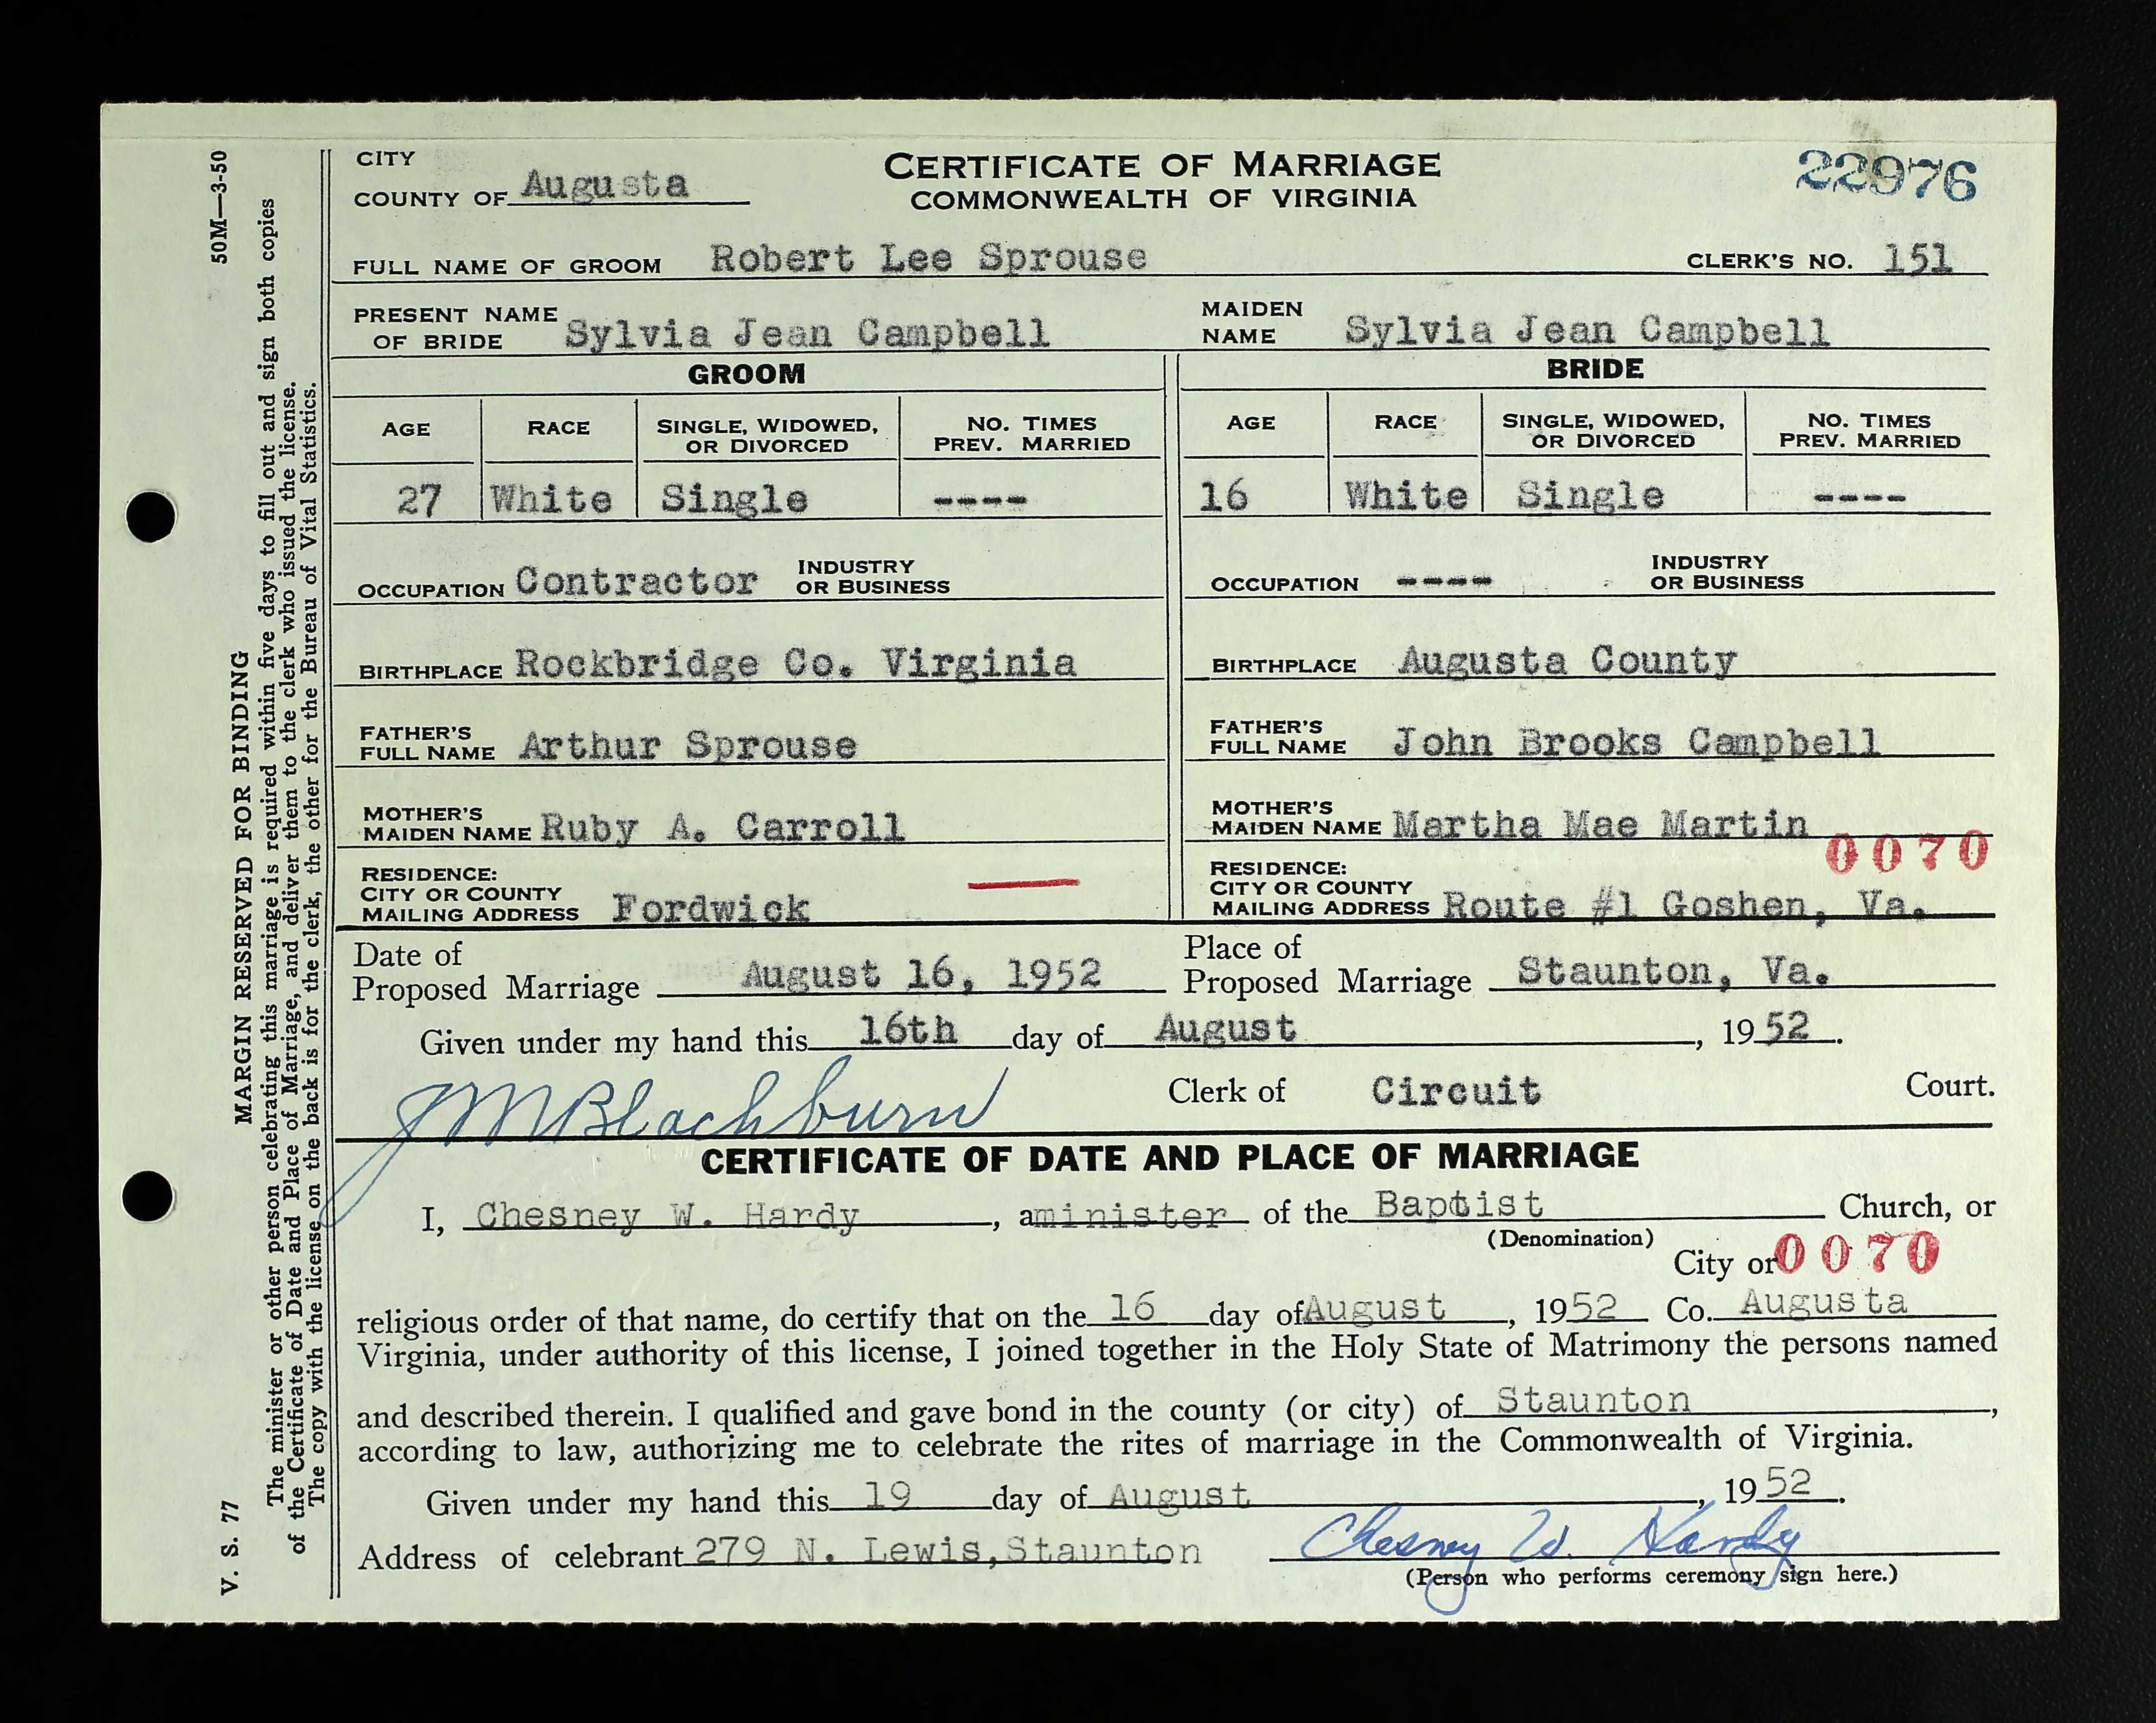 50M—3-50
MARGIN RESERVED FOR BINDING
The minister or other person celebrating this marriage is required within five days to fill out and sign both copies
of the Certificate of Date and Place of Marriage, and deliver them to the clerk who issued the license.
The copy with the license on the back is for the clerk, the other for the Bureau of Vital Statistics.
V. S. 77
CITY
COUNTY OF Augusta
CERTIFICATE OF MARRIAGE
COMMONWEALTH OF VIRGINIA
22976
FULL NAME OF GROOM Robert Lee Sprouse CLERK'S NO. 151
PRESENT NAME
OF BRIDE Sylvia Jean Campbell
MAIDEN
NAME Sylvia Jean Campbell
GROOM
AGE RACE SINGLE, WIDOWED, OR DIVORCED NO. TIMES PREV. MARRIED
27 White Single ----
OCCUPATION Contractor INDUSTRY OR BUSINESS
BIRTHPLACE Rockbridge Co. Virginia
FATHER'S
FULL NAME Arthur Sprouse
MOTHER'S
MAIDEN NAME Ruby A. Carroll
RESIDENCE:
CITY OR COUNTY
MAILING ADDRESS Fordwick
BRIDE
AGE RACE SINGLE, WIDOWED, OR DIVORCED NO. TIMES PREV. MARRIED
16 White Single ----
OCCUPATION ---- INDUSTRY OR BUSINESS
BIRTHPLACE Augusta County
FATHER'S
FULL NAME John Brooks Campbell
MOTHER'S
MAIDEN NAME Martha Mae Martin
0070
RESIDENCE:
CITY OR COUNTY
MAILING ADDRESS Route #1 Goshen, Va.
Date of
Proposed Marriage August 16, 1952
Place of
Proposed Marriage Staunton, Va.
Given under my hand this 16th day of August, 1952.
J M Blackburn Clerk of Circuit Court.
CERTIFICATE OF DATE AND PLACE OF MARRIAGE
I, Chesney W. Hardy, a minister of the Baptist Church, or
(Denomination)
City or 0070
religious order of that name, do certify that on the 16 day of August, 1952 Co. Augusta
Virginia, under authority of this license, I joined together in the Holy State of Matrimony the persons named
and described therein. I qualified and gave bond in the county (or city) of Staunton,
according to law, authorizing me to celebrate the rites of marriage in the Commonwealth of Virginia.
Given under my hand this 19 day of August, 1952.
Address of celebrant 279 N. Lewis, Staunton Chesney W. Hardy
(Person who performs ceremony sign here.)